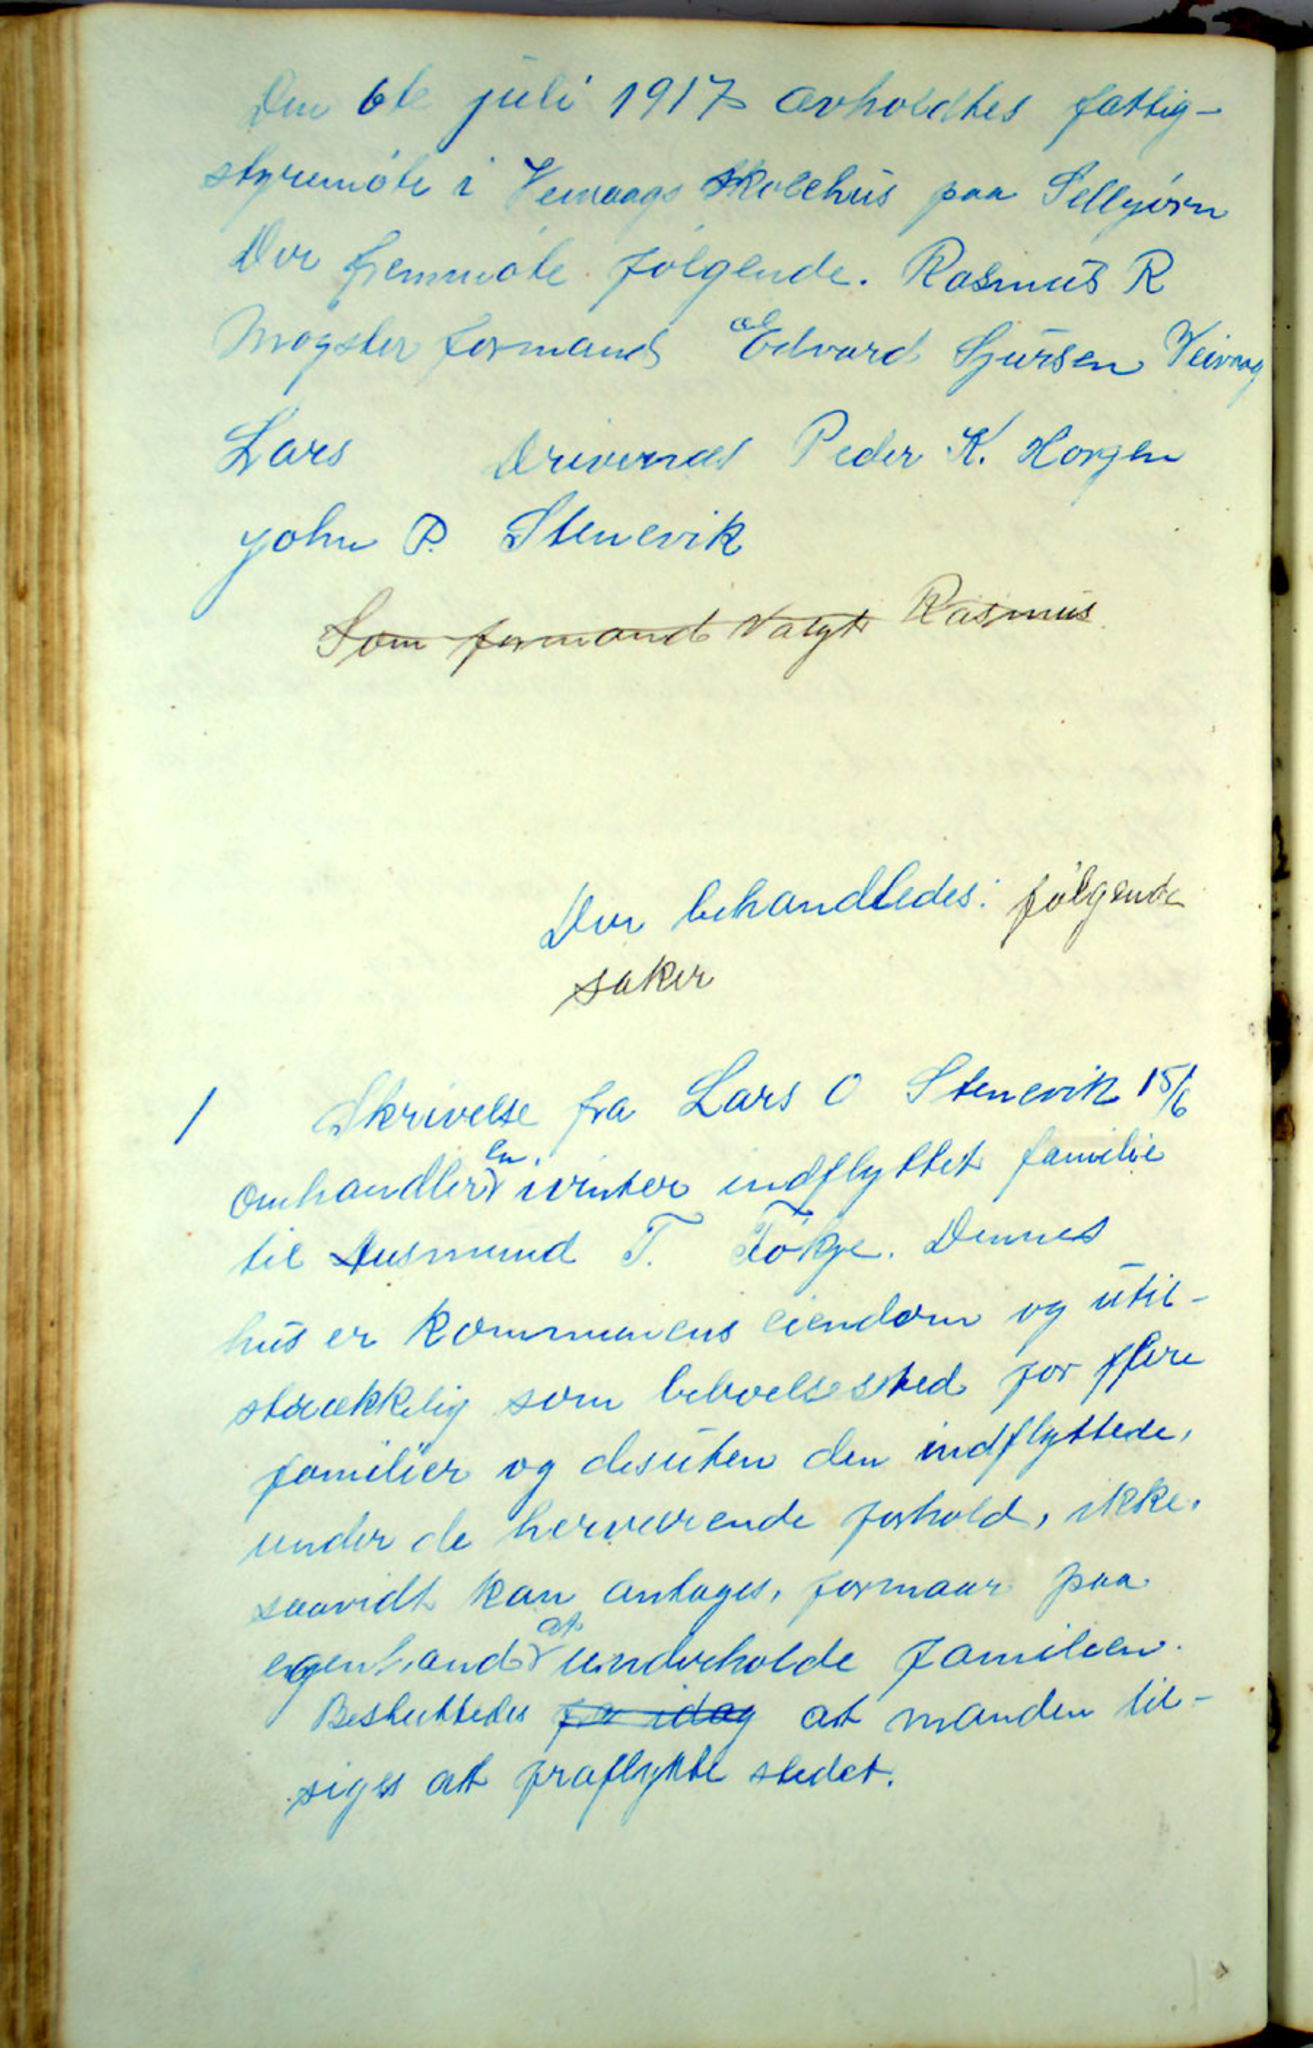 Den 6te juli 1917 avholdtes fattig-
styremöte i Veivaags Skolehus paa Selbjørn
Der fremmöte følgende. Rasmus R
Møgster formand Edvard Sjursen Veivaag
Lars Drivenes Peder K. Horgen
John P. Stenevik
Som formand valgt Rasmus
Der behandledes: følgende
saker
1 Skrivelse fra Lars O Stenevik 15/6
omhandler en ivinter indflyttet familie
til Ausmund T. Tökje. Dennes
hus er kommunens eiendom og util-
strækkelig som beboelsessted for flere
familier og desuten den indflyttede,
under de herværende forhold, ikke,
saavidt kan antages, formaar paa
egenhand at underholde familien.
Besluttedes fra idag at manden til-
siges at fraflytte stedet.